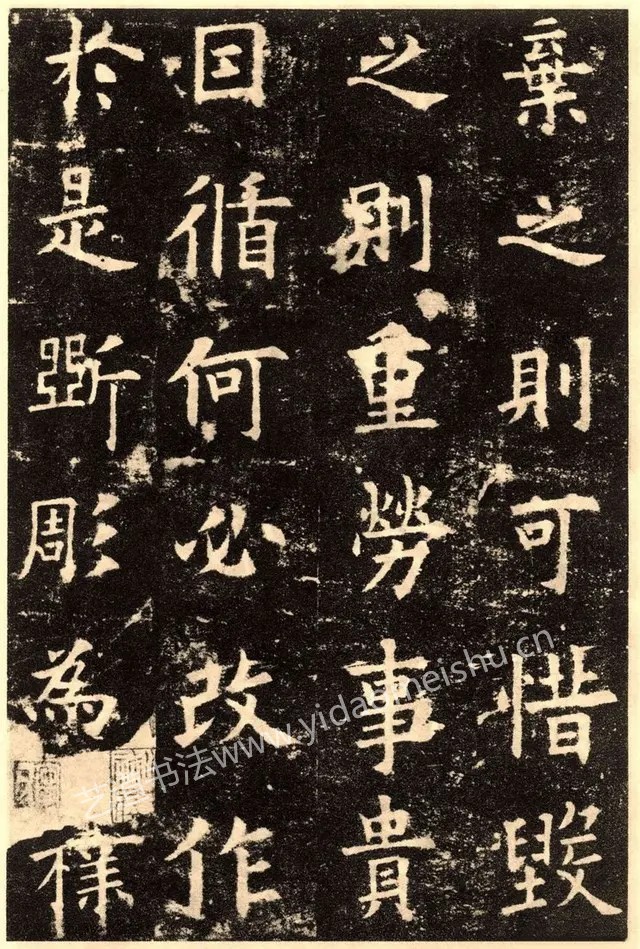 棄之則可惜毀
之則重勞事貴
因循何必改作
於是斲彫為樸
艺道书法www.yidaomeishu.cn